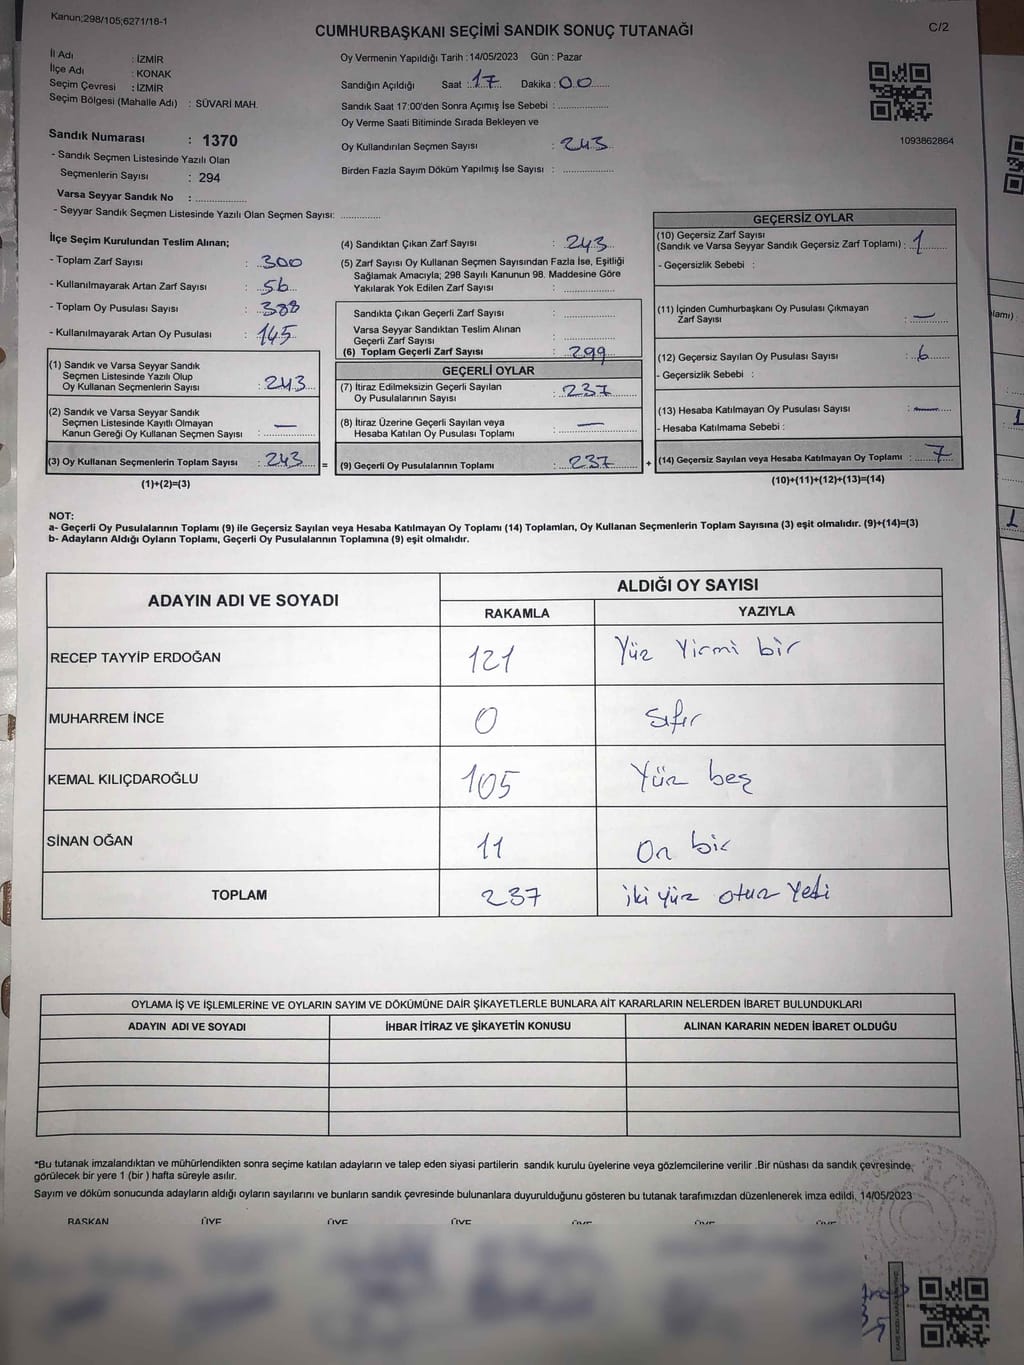 Kanun;298/105;6271/18-1
CUMHURBAŞKANI SEÇİMİ SANDIK SONUÇ TUTANAĞI
C/2
İl Adı : İZMİR
İlçe Adı : KONAK
Seçim Çevresi : İZMİR
Seçim Bölgesi (Mahalle Adı) : SÜVARİ MAH.
Oy Vermenin Yapıldığı Tarih :14/05/2023 Gün : Pazar
Sandığın Açıldığı Saat :17 Dakika :00
Sandık Saat 17:00'den Sonra Açımış İse Sebebi :
Oy Verme Saati Bitiminde Sırada Bekleyen ve
Oy Kullandırılan Seçmen Sayısı : 243
Birden Fazla Sayım Döküm Yapılmış İse Sayısı :
1093862864
Sandık Numarası : 1370
- Sandık Seçmen Listesinde Yazılı Olan
Seçmenlerin Sayısı : 294
Varsa Seyyar Sandık No :
- Seyyar Sandık Seçmen Listesinde Yazılı Olan Seçmen Sayısı:
İlçe Seçim Kurulundan Teslim Alınan;
- Toplam Zarf Sayısı : 300
- Kullanılmayarak Artan Zarf Sayısı : 56
- Toplam Oy Pusulası Sayısı : 388
- Kullanılmayarak Artan Oy Pusulası : 145
(1) Sandık ve Varsa Seyyar Sandık
Seçmen Listesinde Yazılı Olup
Oy Kullanan Seçmenlerin Sayısı : 243
(2) Sandık ve Varsa Seyyar Sandık
Seçmen Listesinde Kayıtlı Olmayan
Kanun Gereği Oy Kullanan Seçmen Sayısı : —
(3) Oy Kullanan Seçmenlerin Toplam Sayısı : 243 =
(1)+(2)=(3)
(4) Sandıktan Çıkan Zarf Sayısı : 243
(5) Zarf Sayısı Oy Kullanan Seçmen Sayısından Fazla İse, Eşitliği
Sağlamak Amacıyla; 298 Sayılı Kanunun 98. Maddesine Göre
Yakılarak Yok Edilen Zarf Sayısı :
Sandıkta Çıkan Geçerli Zarf Sayısı :
Varsa Seyyar Sandıktan Teslim Alınan
Geçerli Zarf Sayısı :
(6) Toplam Geçerli Zarf Sayısı : 299
GEÇERLİ OYLAR
(7) İtiraz Edilmeksizin Geçerli Sayılan
Oy Pusulalarının Sayısı : 237
(8) İtiraz Üzerine Geçerli Sayılan veya
Hesaba Katılan Oy Pusulası Toplamı : —
(9) Geçerli Oy Pusulalarının Toplamı : 237 +
GEÇERSİZ OYLAR
(10) Geçersiz Zarf Sayısı
(Sandık ve Varsa Seyyar Sandık Geçersiz Zarf Toplamı) : 1
- Geçersizlik Sebebi :
(11) İçinden Cumhurbaşkanı Oy Pusulası Çıkmayan
Zarf Sayısı : —
(12) Geçersiz Sayılan Oy Pusulası Sayısı : 6
- Geçersizlik Sebebi :
(13) Hesaba Katılmayan Oy Pusulası Sayısı : —
- Hesaba Katılmama Sebebi :
(14) Geçersiz Sayılan veya Hesaba Katılmayan Oy Toplamı : 7
(10)+(11)+(12)+(13)=(14)
NOT:
a- Geçerli Oy Pusulalarının Toplamı (9) ile Geçersiz Sayılan veya Hesaba Katılmayan Oy Toplamı (14) Toplamları, Oy Kullanan Seçmenlerin Toplam Sayısına (3) eşit olmalıdır. (9)+(14)=(3)
b- Adayların Aldığı Oyların Toplamı, Geçerli Oy Pusulalarının Toplamına (9) eşit olmalıdır.
ADAYIN ADI VE SOYADI
ALDIĞI OY SAYISI
RAKAMLA YAZIYLA
RECEP TAYYİP ERDOĞAN 121 Yüz Yirmi bir
MUHARREM İNCE 0 Sıfır
KEMAL KILIÇDAROĞLU 105 Yüz beş
SİNAN OĞAN 11 On bir
TOPLAM 237 iki yüz otuz Yedi
OYLAMA İŞ VE İŞLEMLERİNE VE OYLARIN SAYIM VE DÖKÜMÜNE DAİR ŞİKAYETLERLE BUNLARA AİT KARARLARIN NELERDEN İBARET BULUNDUKLARI
ADAYIN ADI VE SOYADI İHBAR İTİRAZ VE ŞİKAYETİN KONUSU ALINAN KARARIN NEDEN İBARET OLDUĞU
*Bu tutanak imzalandıktan ve mühürlendikten sonra seçime katılan adayların ve talep eden siyasi partilerin sandık kurulu üyelerine veya gözlemcilerine verilir .Bir nüshası da sandık çevresinde
görülecek bir yere 1 (bir ) hafta süreyle asılır.
Sayım ve döküm sonucunda adayların aldığı oyların sayılarını ve bunların sandık çevresinde bulunanlara duyurulduğunu gösteren bu tutanak tarafımızdan düzenlenerek imza edildi. 14/05/2023
BAŞKAN ÜYE ÜYE ÜYE ÜYE ÜYE ÜYE